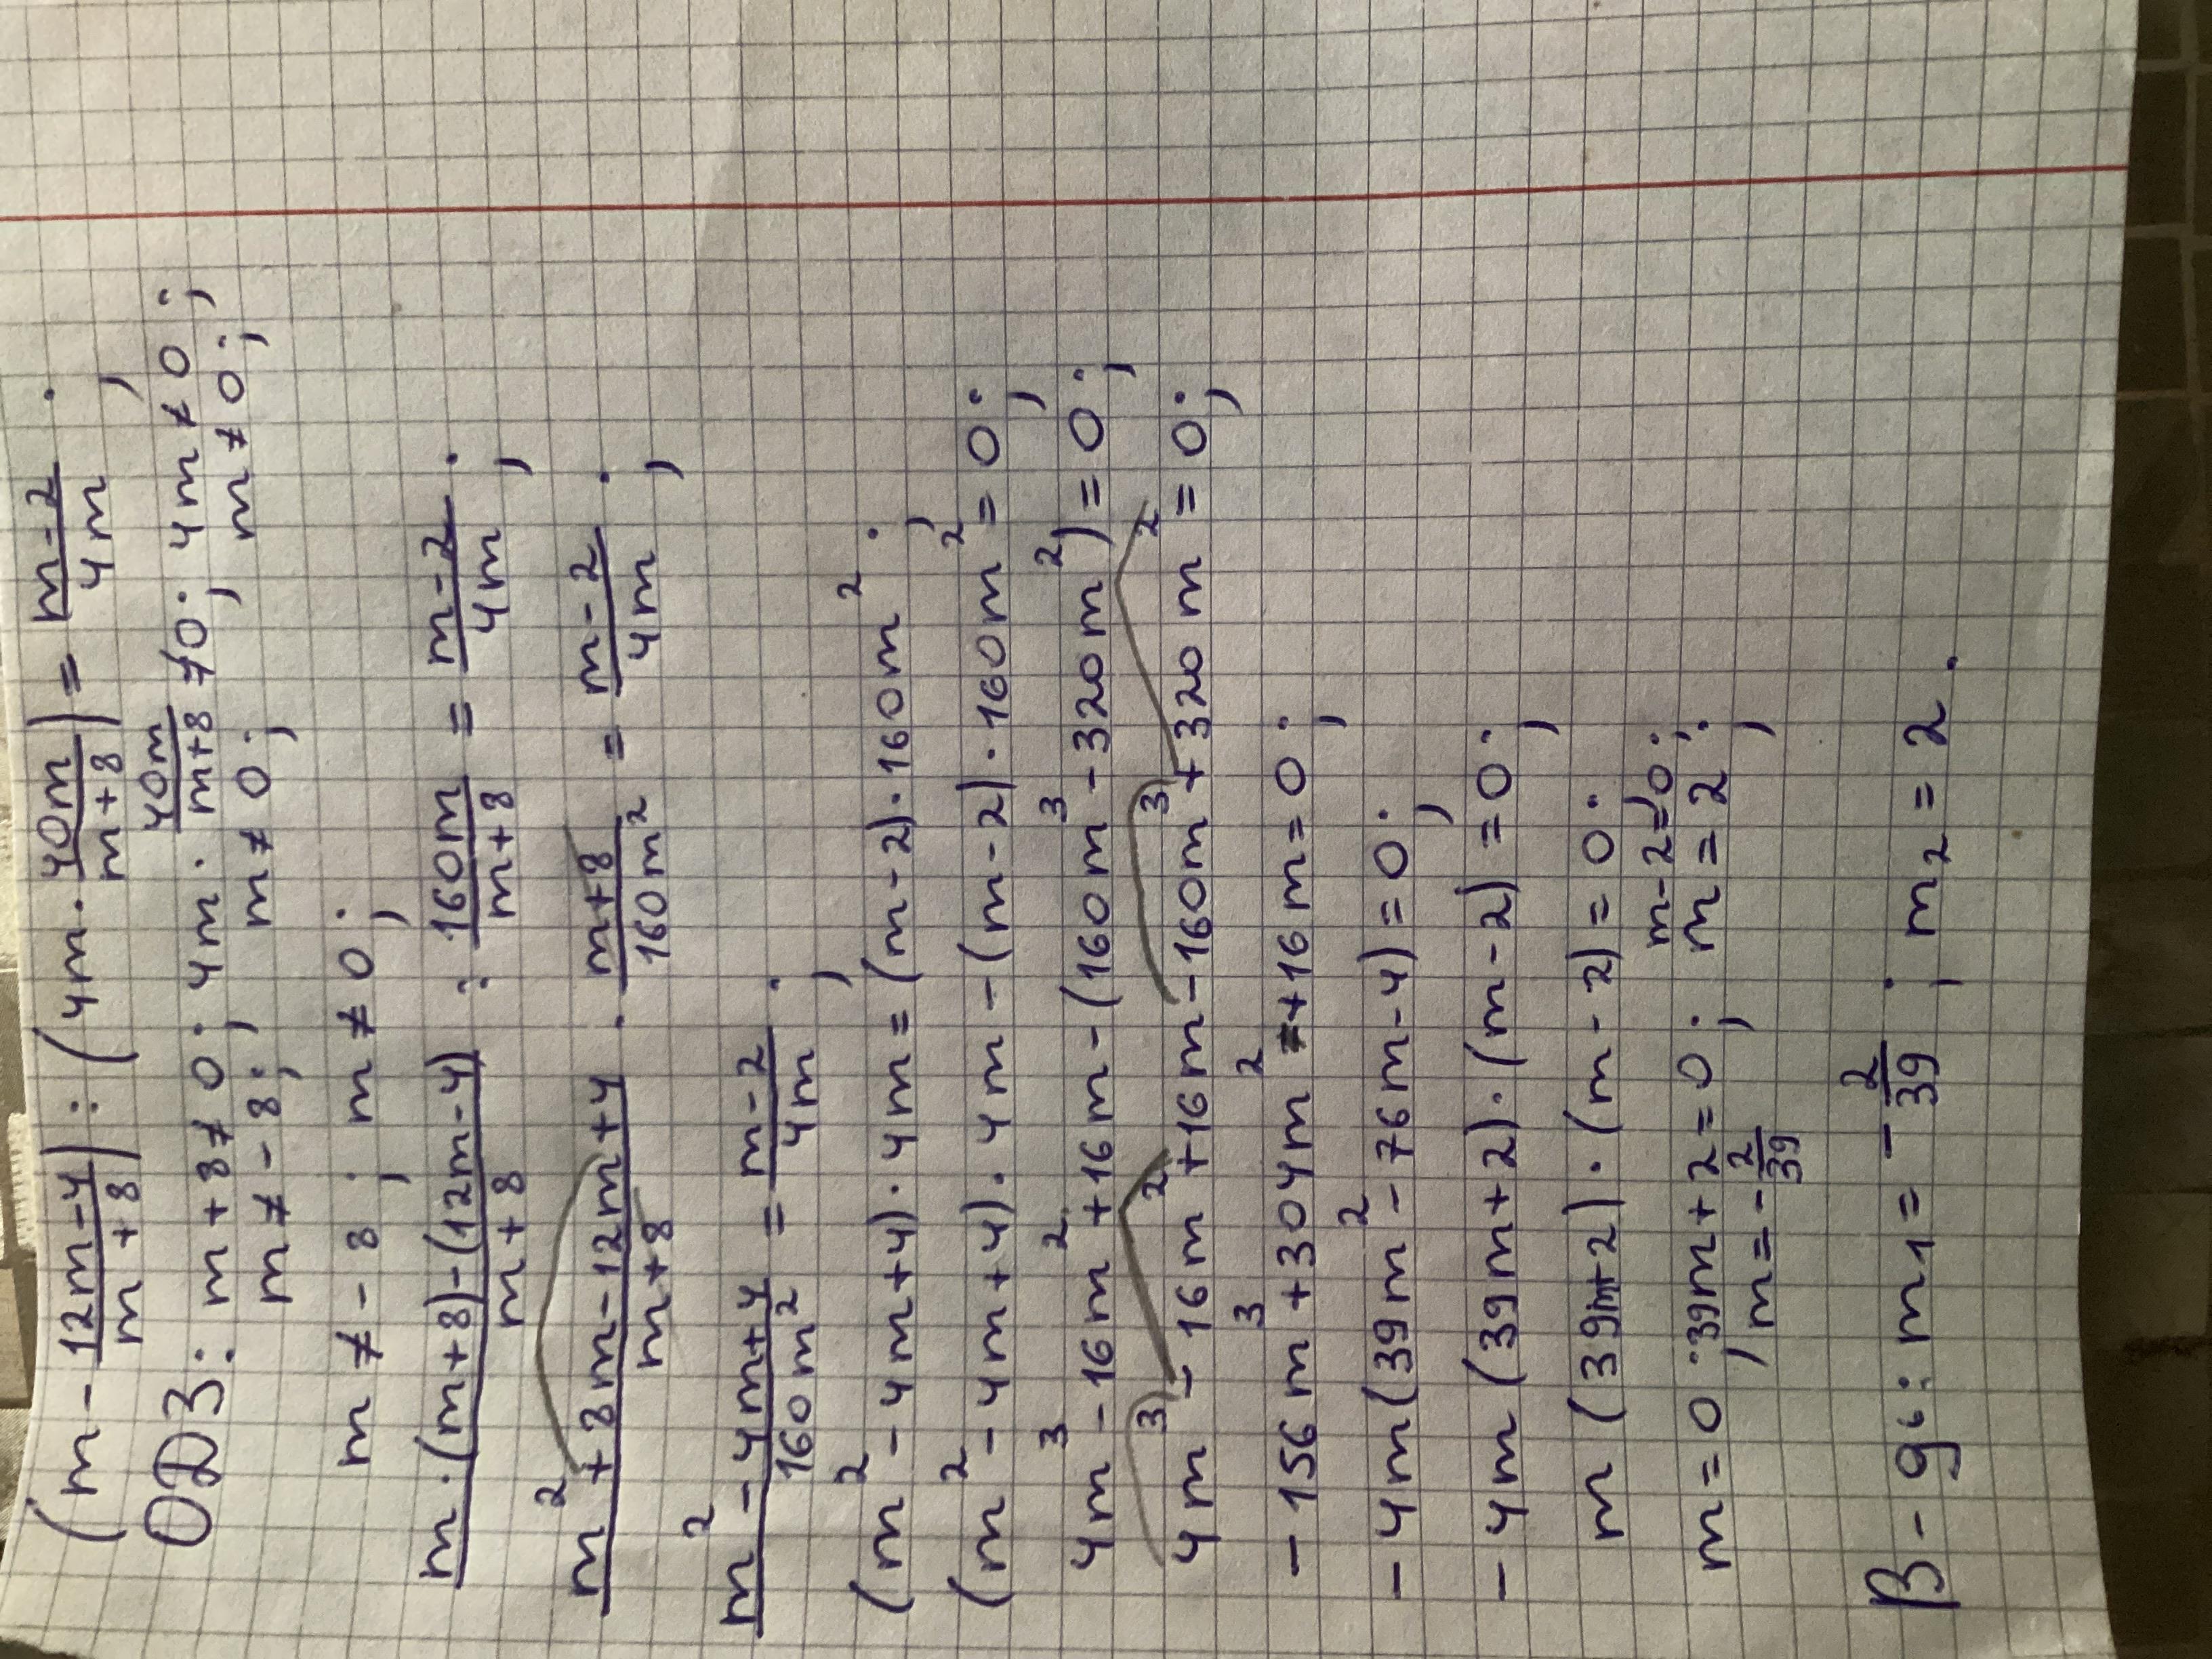 (m - (12m-4)/(m+8)) : (4m · 40m/(m+8)) = (m-2)/(4m);
ОДЗ: m+8≠0; 4m · 40m/(m+8) ≠0; 4m≠0;
m≠-8; m≠0; m≠0;
m≠-8; m≠0;
(m·(m+8)-(12m-4))/(m+8) : 160m/(m+8) = (m-2)/(4m);
(m²+8m-12m+4)/(m+8) · (m+8)/(160m²) = (m-2)/(4m);
(m²-4m+4)/(160m²) = (m-2)/(4m);
(m²-4m+4)·4m=(m-2)·160m²;
(m²-4m+4)·4m-(m-2)·160m²=0;
4m³-16m²+16m-(160m³-320m²)=0;
4m³-16m²+16m-160m³+320m²=0;
-156m³+304m²+16m=0;
-4m(39m²-76m-4)=0;
-4m(39m+2)·(m-2)=0;
m(39m+2)·(m-2)=0;
m=0; 39m+2=0; m-2=0;
m=-2/39; m=2;
В-дь: m₁=-2/39; m₂=2.